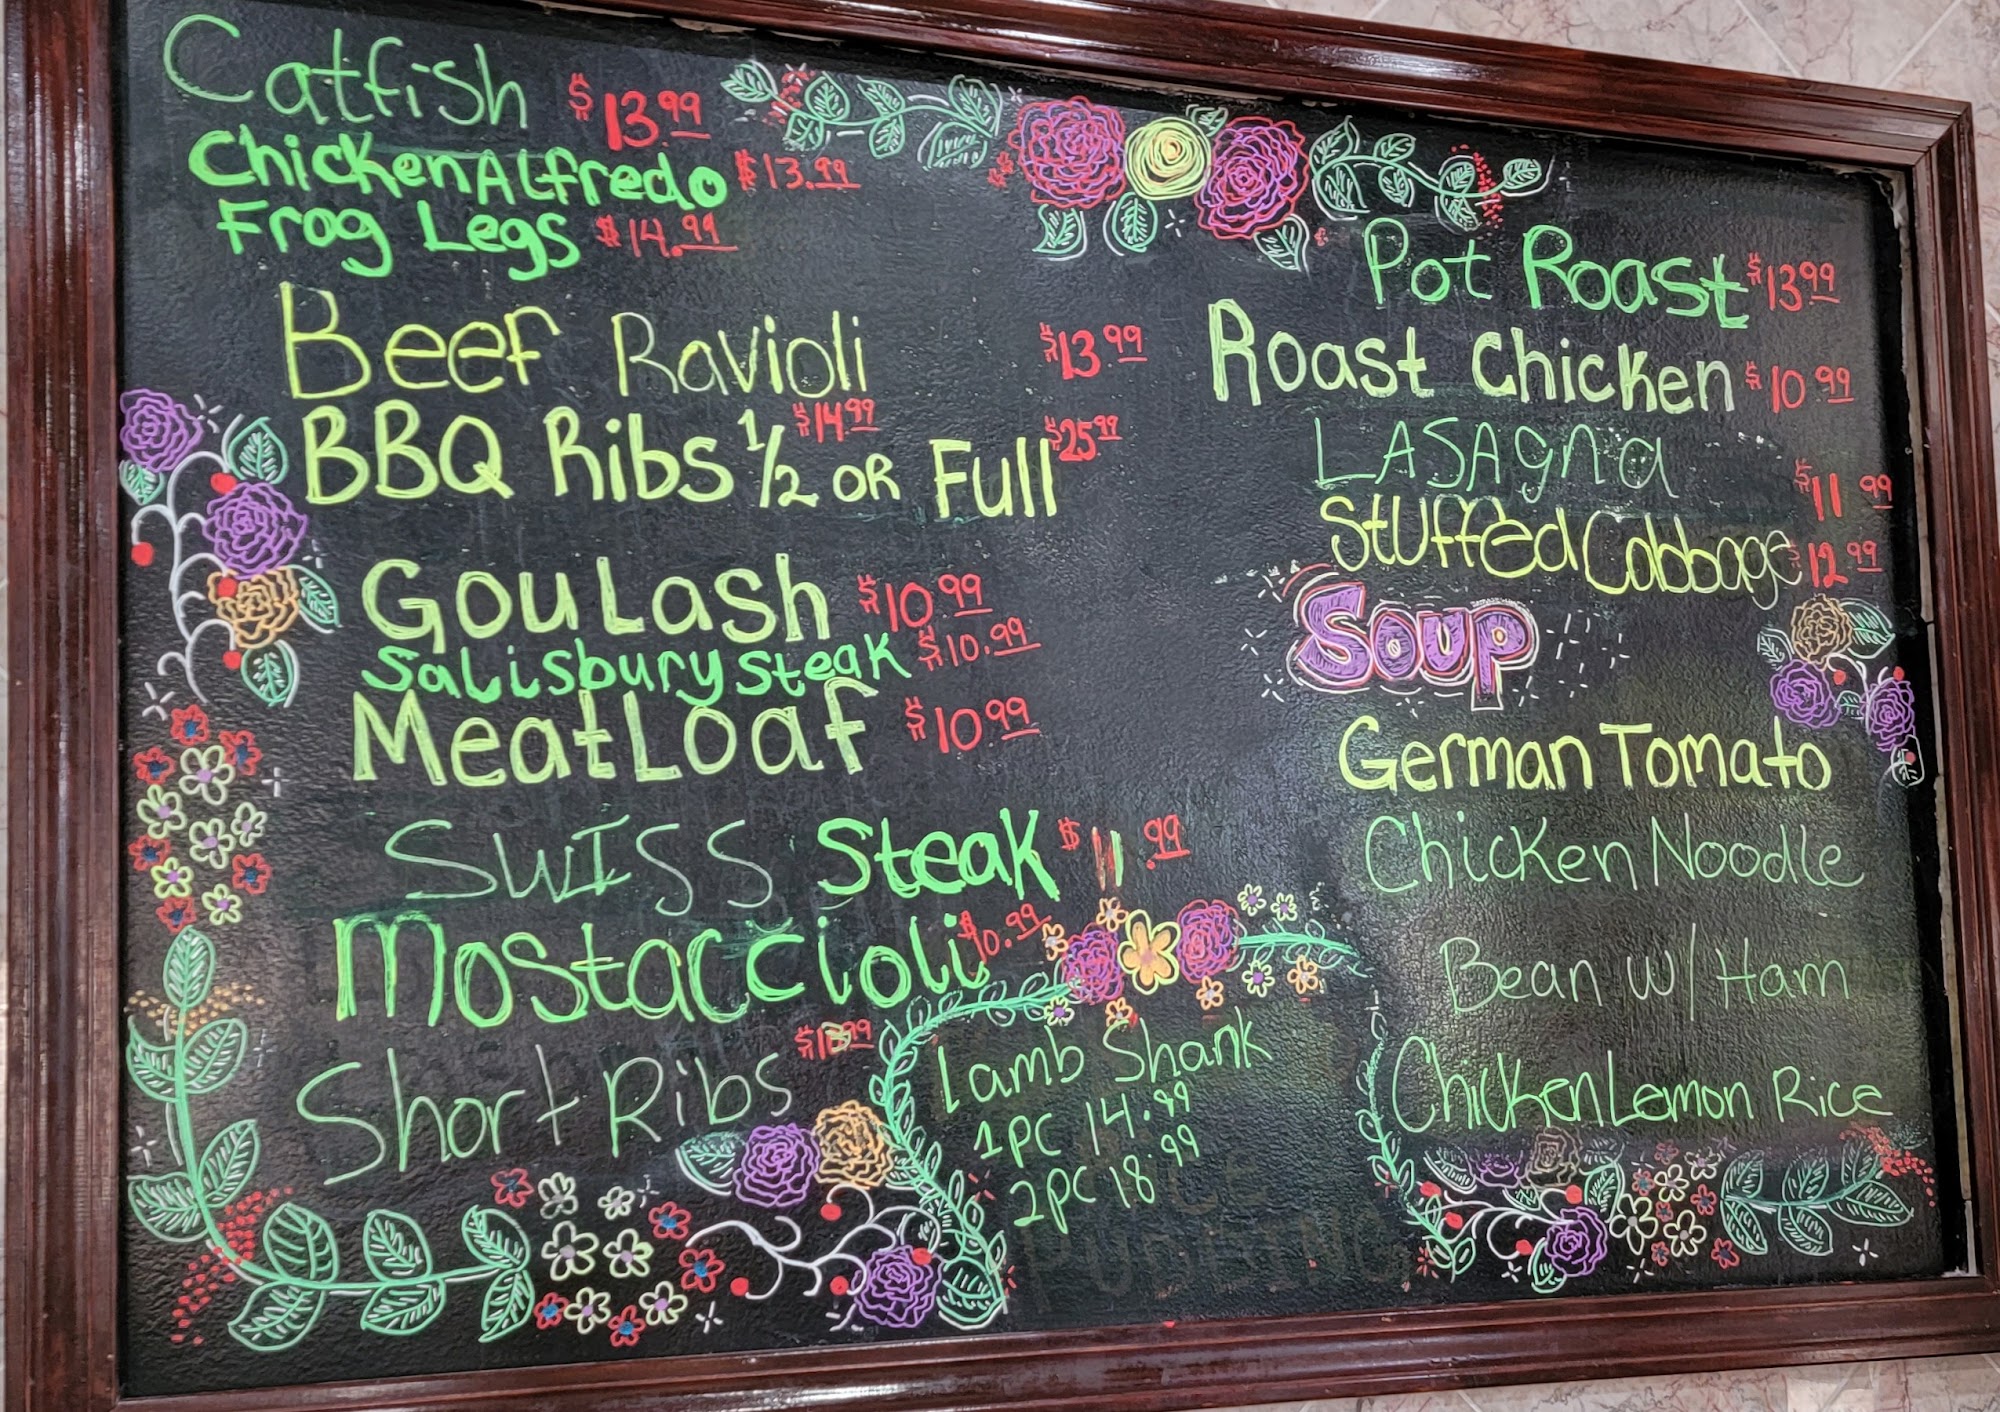 Catfish $13.99
Chicken Alfredo $13.99
Frog Legs $14.99
Beef Ravioli $13.99
BBQ Ribs 1/2 $14.99 OR Full $25.99
Goulash $10.99
Salisbury Steak $10.99
MeatLoaf $10.99
SWISS Steak $11.99
Mostaccioli $10.99
Short Ribs
Lamb Shank
1PC 14.99
2PC 18.99
Pot Roast $13.99
Roast Chicken $10.99
LASAgna $11.99
Stuffed Cabbage $12.99
Soup
German Tomato
Chicken Noodle
Bean w/ Ham
Chicken Lemon Rice